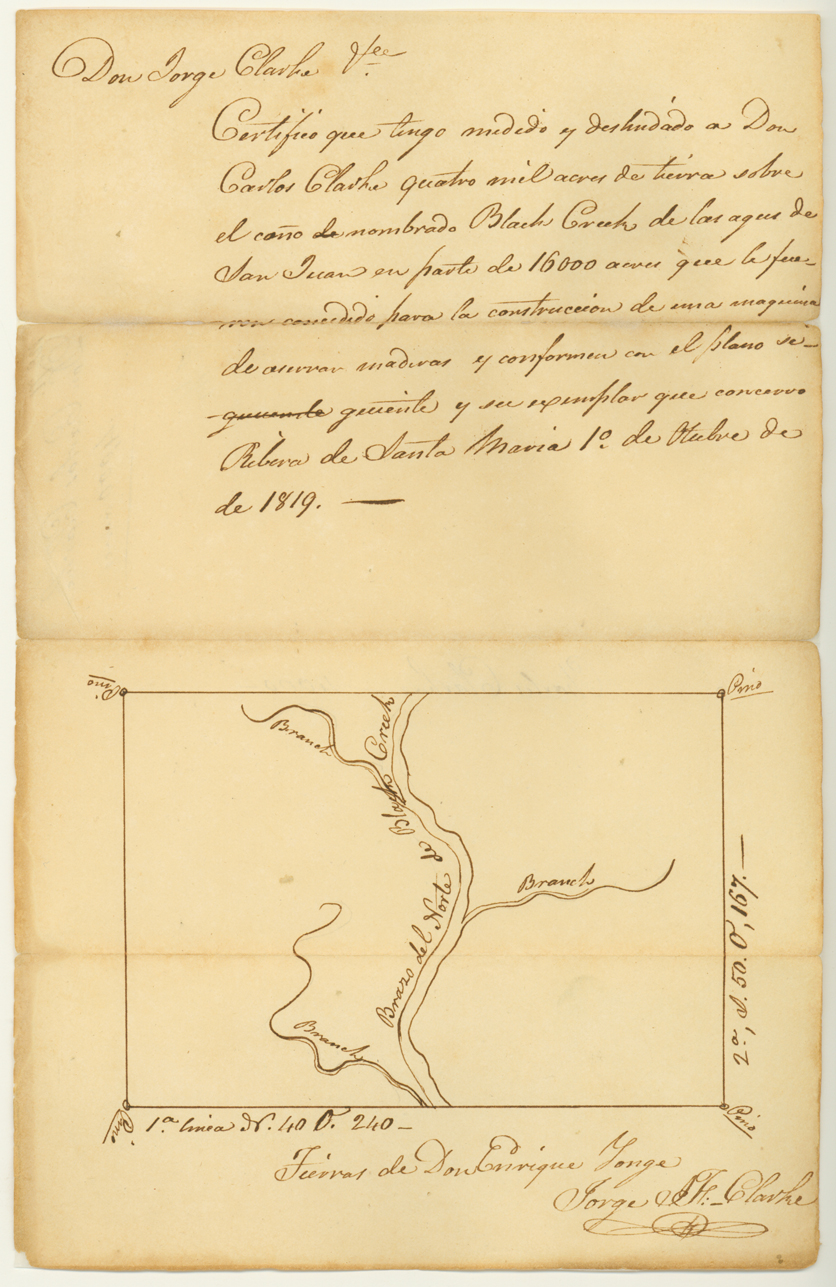 Don Jorge Clarke &ee
Certifico que tengo medido y deslindado a Don
Carlos Clarke quatro mil acres de tierra sobre
el caño de nombrado Black Creek de las agus de
San Juan en parte de 16000 acres que le fue-
ron concedido para la construccion de una maquina
de aserrar maderas y conformen con el plano si-
guiente y su exemplar que concervo
Ribera de Santa Maria 1º de Otubre de
de 1819. —
Pino
Pino
Branch
Black Creek
Brazo del Norte de
Branch
Branch
2ª, S. 50. O, 167. —
Pino
1ª linea N. 40 O. 240 -
Pino
Tierras de Don Enrique Yonge
Jorge J. F. Clarke